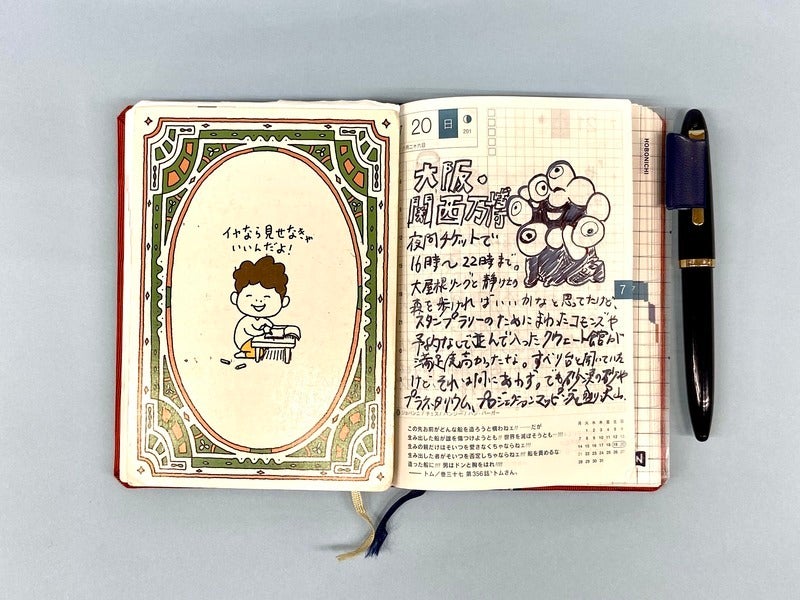 イヤなら見せなきゃ
いいんだよ!
20 日 201
大阪・
関西万博
夜間チケットで
16時〜22時まで。
大屋根リングと静けさの
森を歩ければいいかなと思ってたけど、
スタンプラリーのためにまわったコモンズや
予約なしで並んで入ったクウェート館が
満足度高かったな。すべり台と聞いていた
けど、それは間にあわず。でも砂漠の砂や
プラネタリウム、プロジェクションマッピング盛り沢山。
この先お前がどんな船を造ろうと構わねェ!!……だが
生み出した船が誰を傷つけようとも!! 世界を滅ぼそうとも…!!!
生みの親だけはそいつを愛さなくちゃならねェ!!!
生み出した者がそいつを否定しちゃならねェ!!! 船を責めるな
造った船に!!! 男はドンと胸をはれ!!!
── トム/巻三十七 第356話“トムさん”
月 火 水 木 金 土 日
1 2 3 4 5 6
7 8 9 10 11 12 13
14 15 16 17 18 19 20
21 22 23 24 25 26 27
28 29 30 31
HOBONICHI
7
7